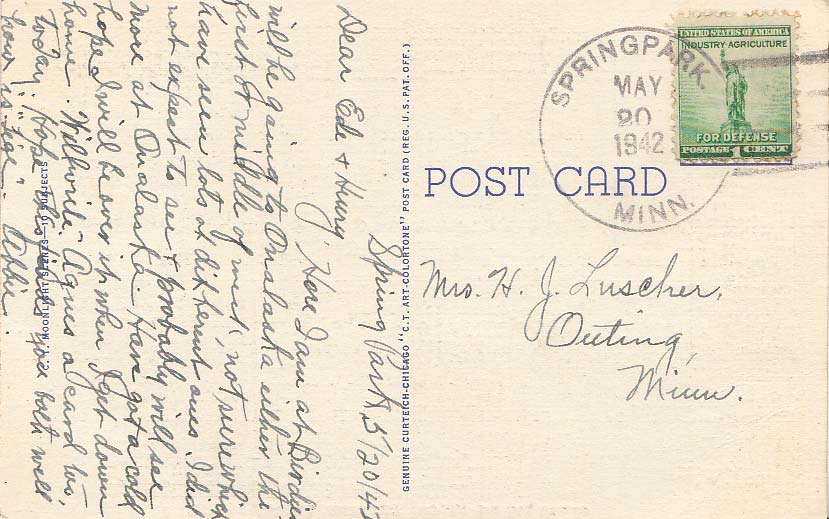 Spring Park, 5/20/42
Dear Ede & Hury, Here I am at Birdie
will be going to Onalaska either the
first or middle of next, not sure which
have seen lots of different ones I did
not expect to see & probably will see
more at Onalaska. Have got a cold
hope I will be over it when I get down
home. Will write Agnes a card too,
today. Hope this finds you both well
how is "Tige". Abbie.
C. T. MOONLIGHT SCENES—10 SUBJECTS
GENUINE CURTEICH-CHICAGO "C.T. ART-COLORTONE" POST CARD (REG. U.S. PAT. OFF.)
POST CARD
SPRING PARK.
MAY
20
1942
MINN.
UNITED STATES OF AMERICA
INDUSTRY·AGRICULTURE
FOR DEFENSE
POSTAGE 1 CENT
Mrs. H. J. Luscher,
Outing,
Minn.